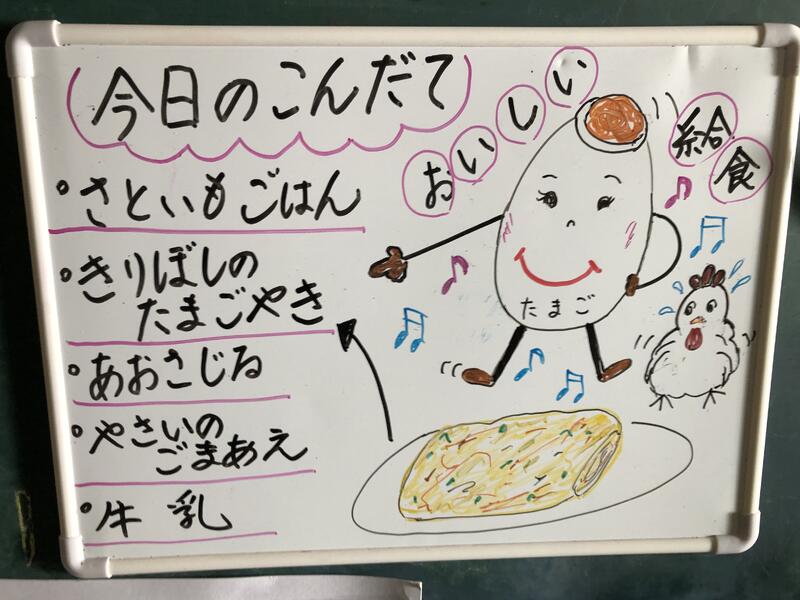 今日のこんだて
・さといもごはん
・きりぼしの
たまごやき
・あおさじる
・やさいの
ごまあえ
・牛乳
おいしい
給食
たまご